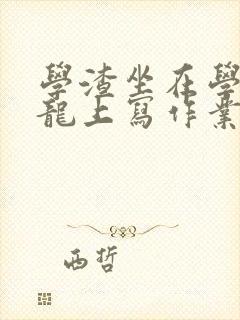 學渣坐在學
龍上寫作業
西哲